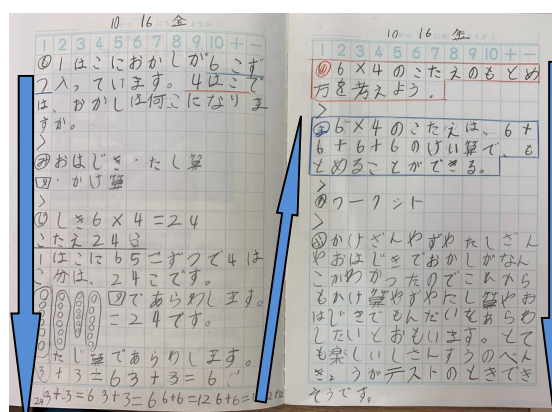 10 16 金
1 2 3 4 5 6 7 8 9 10 + −
も 1はこにおかしが6こず
つ入っています。4はこで
は、おかしは何こになりま
すか。
>
み おはじき・たし算
図・かけ算
>
じ しき6×4=24
こたえ24こ
1はこに65=ずつで4は
こ分は、24こです。
図であらわします。
=24です。
たし算であらわします。
3+3=6 3+3=6
3+3=6 3+3=6 6+6=12 6+6=12
10 16 金
1 2 3 4 5 6 7 8 9 10 + −
め 6×4のこたえのもとめ
方を考えよう。
>
ま 6×4のこたえは、6+
6+6+6のけい算で、も
とめることができる。
>
ワークシント
>
ふ かけざんやずやたしざん
やおはじきでおかしがなん
こかわかったのでこれから
もかけ算やずやたし算やお
はじきでもんだいをあらわ
したいとおもいます。とて
も楽しいしさんすうのべん
きょうがテストのときでき
そうです。